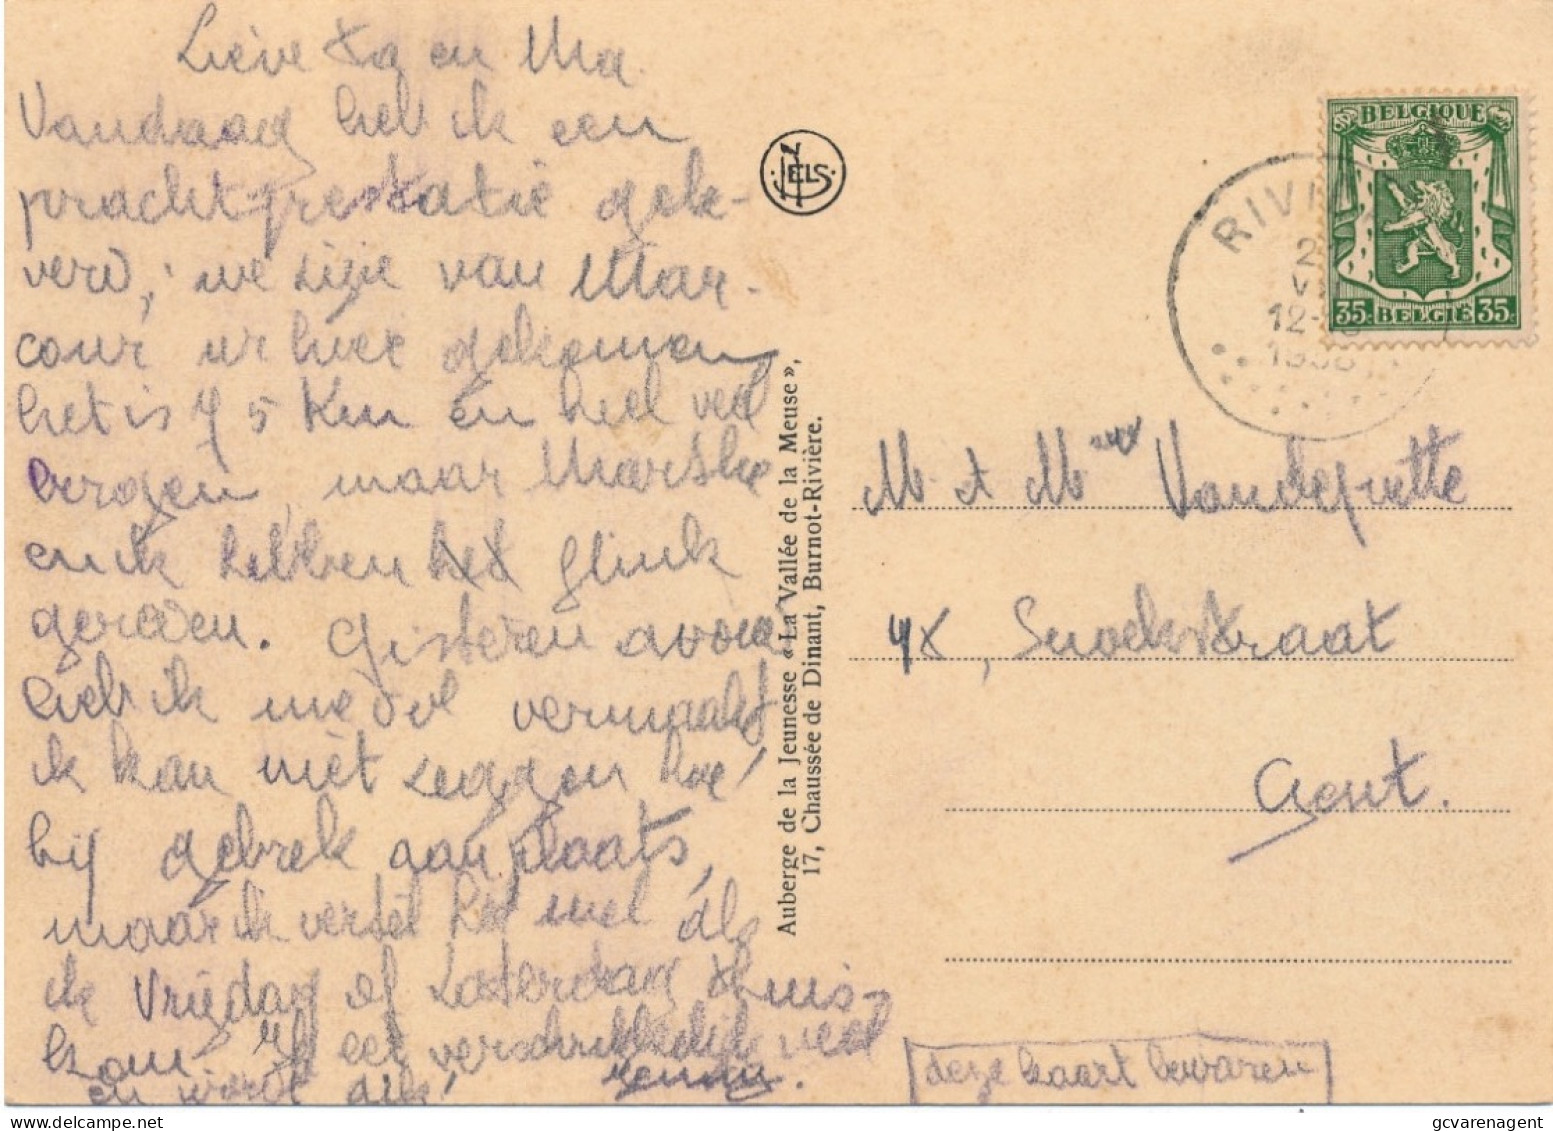 Lieve Pa en Ma
Vandaag heb ik een
pracht-prestatie gele-
verd, we zijn van Mar-
cour hier gekomen
het is 75 Km en heel veel
bergen, maar
en ik hebben het flink
gereden. Gisteren avond
heb ik me dol vermaakt
ik kan niet zeggen hoe
bij gebrek aan plaats,
maar ik vertel het wel als
ik Vrijdag of Zaterdag thuis-
kom. Ik eet verschrikkelijk veel
en word dik!
NELS
Auberge de la Jeunesse «La Vallée de la Meuse»,
17, Chaussée de Dinant, Burnot-Rivière.
BELGIQUE
35c BELGIË 35c
RIVI
12-
1938
M. et Mme Vandeputte
Snoekstraat
Gent.
deze kaart bewaren
gcvarenagent